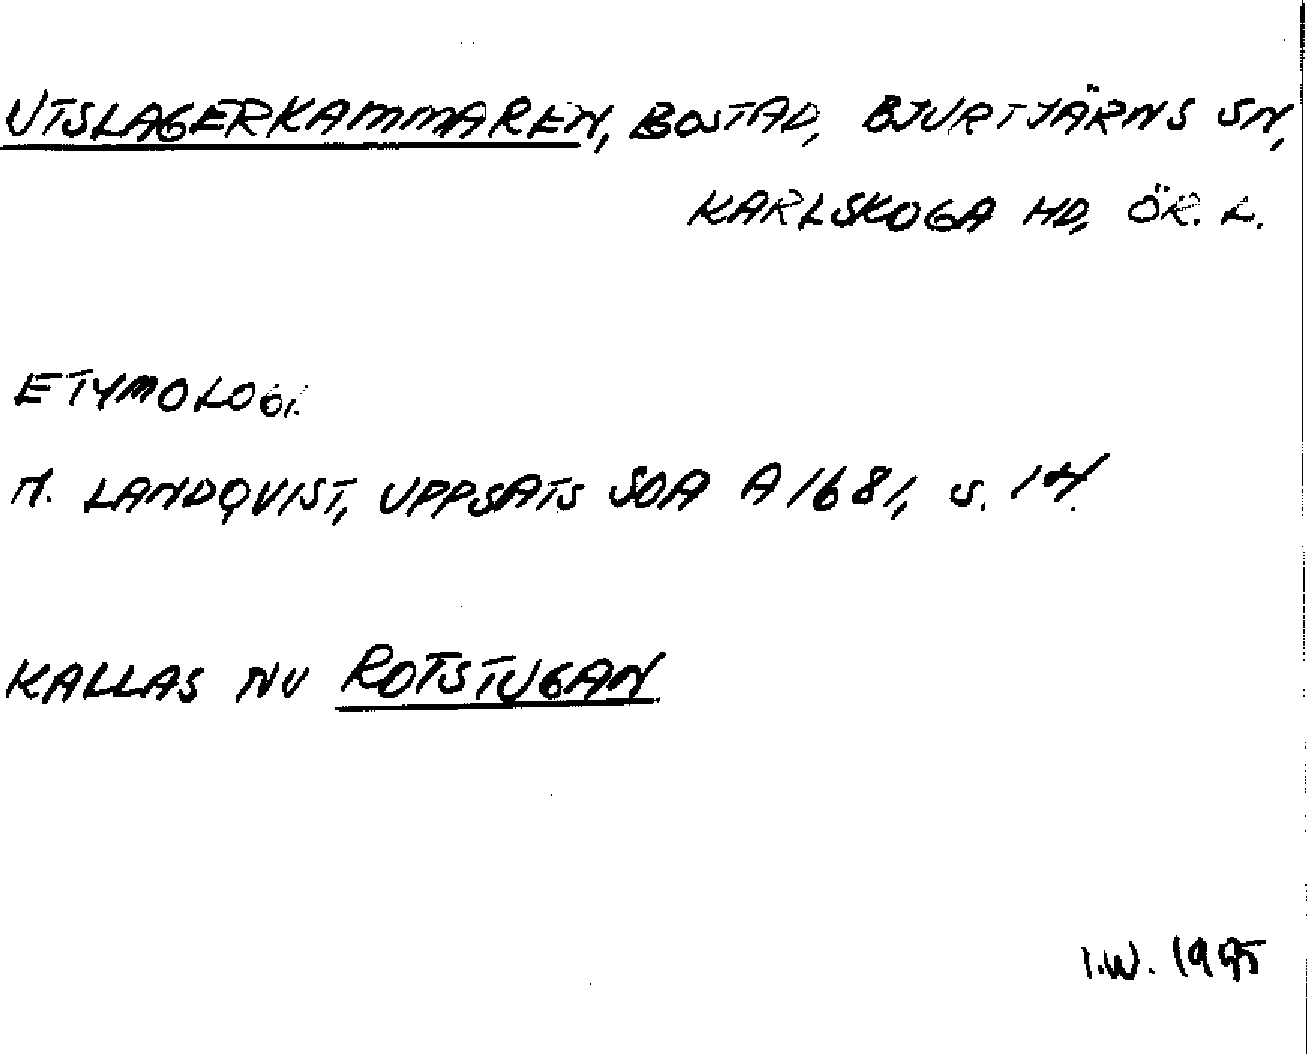 UTSLAGERKAMMAREN, BOSTAD, BJURTJÄRNS SN,
KARLSKOGA HD, ÖR. L.
ETYMOLOGI.
H. LANDQVIST, UPPSATS SOA A 1681, S. 14.
KALLAS NU ROTSTUGAN
I.W. 1995